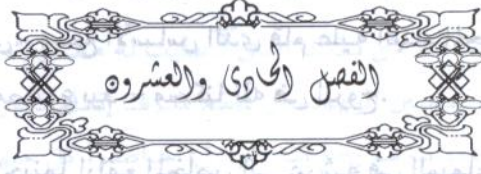 الفصل الحادى والعشرون